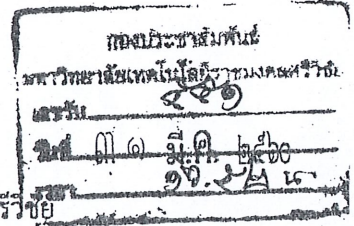 กองประชาสัมพันธ์
มหาวิทยาลัยเทคโนโลยีราชมงคลศรีวิชัย
เลขรับ ๔๕๑
วันที่ ๓๑ มี.ค. ๒๕๖๐
เวลา ๑๖.๕๒ น.
รีวิชัย